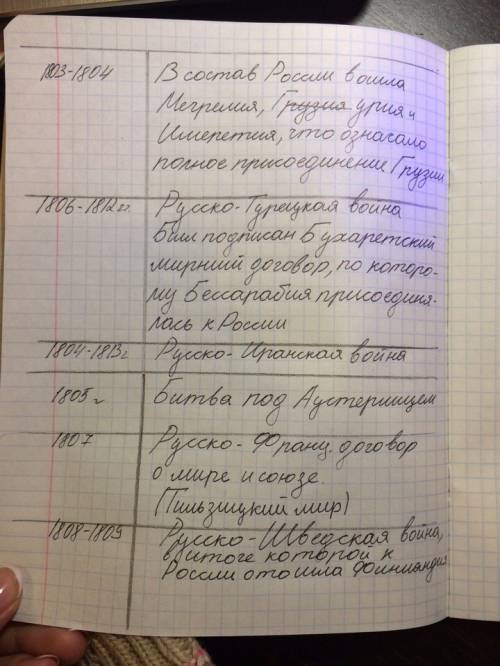 1803-1804 В состав России вошла
Мегрелия, Грузия урия и
Имеретия, что означало
полное присоединение Грузии
1806-1812 гг. Русско-Турецкая война
Был подписан Бухаретский
мирный договор, по которо-
му Бессарабия присоединя-
лась к России
1804-1813г Русско-Иранская война
1805 г Битва под Аустерлицем
1807 Русско-Франц. договор
о мире и союзе.
(Тильзицкий мир)
1808-1809 Русско-Шведская война,
в итоге которой к
России отошла Финляндия